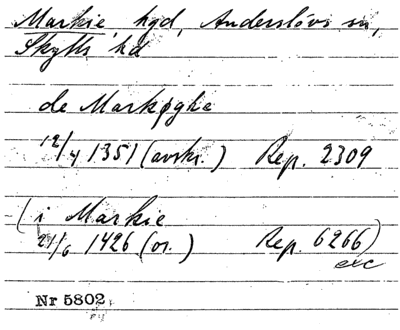 Markie, hgd, Anderslövs sn,
Skytts hd
de Markøghæ
12/4 1351 (avskr.) Rep. 2309
(i Markie
21/6 1426 (or.) Rep. 6266)
exc
Nr 5802